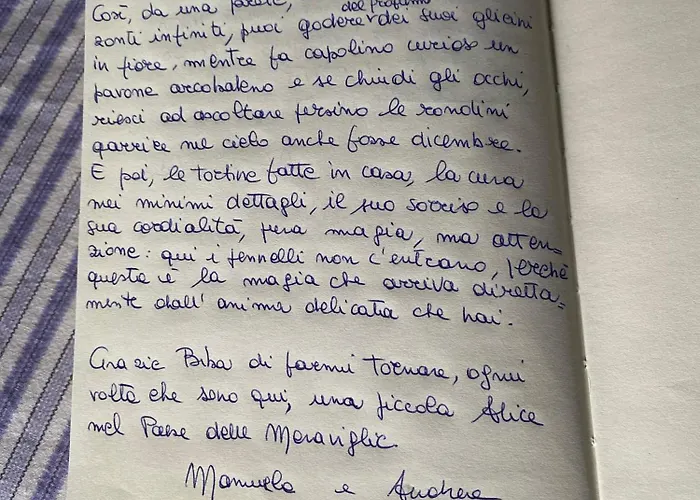 Così, da una parete, del profumo
zonti infiniti, puoi godere dei suoi glicini
in fiore, mentre fa capolino curioso un
pavone arcobaleno e se chiudi gli occhi,
riesci ad ascoltare persino le rondini
garrire nel cielo anche fosse dicembre.
E poi, le tortine fatte in casa, la cura
nei minimi dettagli, il suo sorriso e la
sua cordialità, pura magia, ma atten=
zione: qui i pennelli non c'entrano, perchè
questa è la magia che arriva diretta=
mente dall'anima delicata che hai.
Grazie Biba di farmi tornare, ogni
volta che sono qui, una piccola Alice
nel Paese delle Meraviglie.
Manuela e Andrea